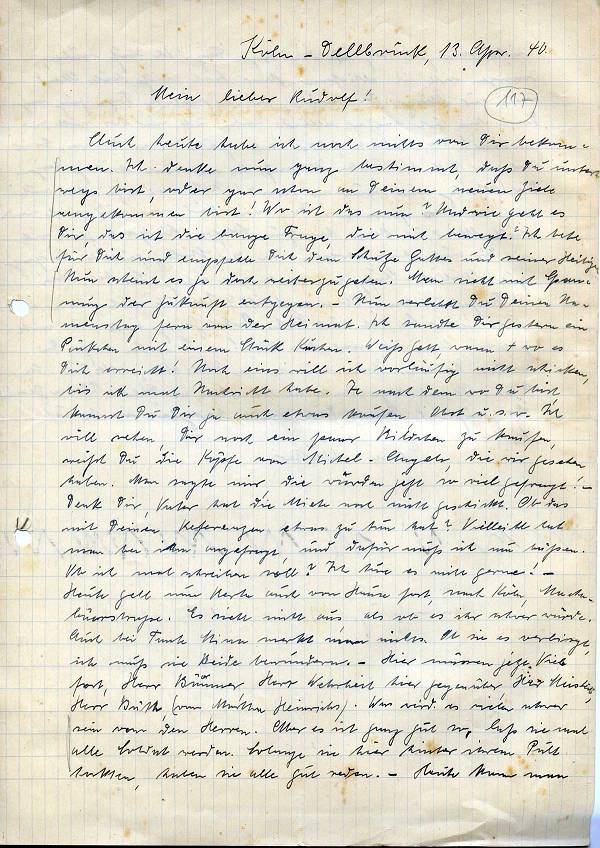 Köln – Dellbrück, 13. Apr. 40.
117
Mein lieber Rudolf!
Auch heute habe ich noch nichts von Dir bekom-
men. Ich denke nun ganz bestimmt, daß Du unter-
wegs bist, oder gar schon an Deinem neuen Ziele
angekommen bist! Wo ist das nun? Und wie geht es
Dir, das ist die bange Frage, die mich bewegt? Ich bete
für Dich und empfehle Dich dem Schutze Gottes und seiner Heiligen
Nun scheint es ja doch weiterzugehen. Man sieht mit Span-
nung der Zukunft entgegen. – Nun verlebst Du Deinen Na-
menstag fern von der Heimat. Ich sandte Dir gestern ein
Päckchen mit einem Stück Kuchen. Weiß Gott, wann + wo es
Dich erreicht! Noch eins will ich vorläufig nicht schicken,
bis ich mal Nachricht habe. Je nach dem wo Du bist
kannst Du Dir ja auch etwas kaufen. Obst u.s.w. Ich
will sehen, Dir noch ein paar Bildchen zu kaufen,
weißt Du die Köpfe von Michel-Angelo, die wir gesehen
haben. Man sagte mir die würden jetzt so viel gefragt! –
Denk Dir, Vater hat die Miete noch nicht geschickt. Ob das
mit Deinen Referenzen etwas zu tun hat? Vielleicht hat
man bei ihm angefragt, und dafür muß ich nun büßen.
Ob ich mal schreiben soll? Ich tue es nicht gerne. –
Heute geht nun Herta auch von Hause fort, nach Köln,
straße. Es sieht nicht aus, als ob es ihr schwer würde.
Auch bei Tante Mina merkt man nichts. Ob sie es verbirgt,
ich muß sie Beide bewundern. – Hier müssen jetzt Viele
fort, Herr Herr Wehrheit hier gegenüber, Herr
Herr (von Heinrichs). Was wird es vielen schwer
sein von den Herren. Aber es ist ganz gut so, daß sie mal
alle Soldat werden. Solange sie hier hinter ihrem Pult
hocken, haben sie alle gut reden. – Heute kann man